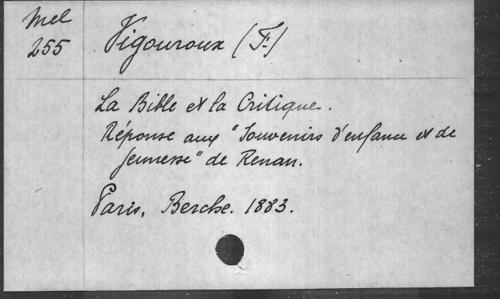 Mel
255
Vigouroux (F.)
La Bible et la Critique.
Réponse aux "Souvenirs d'enfance et de
jeunesse" de Renan.
Paris, Berche. 1883.